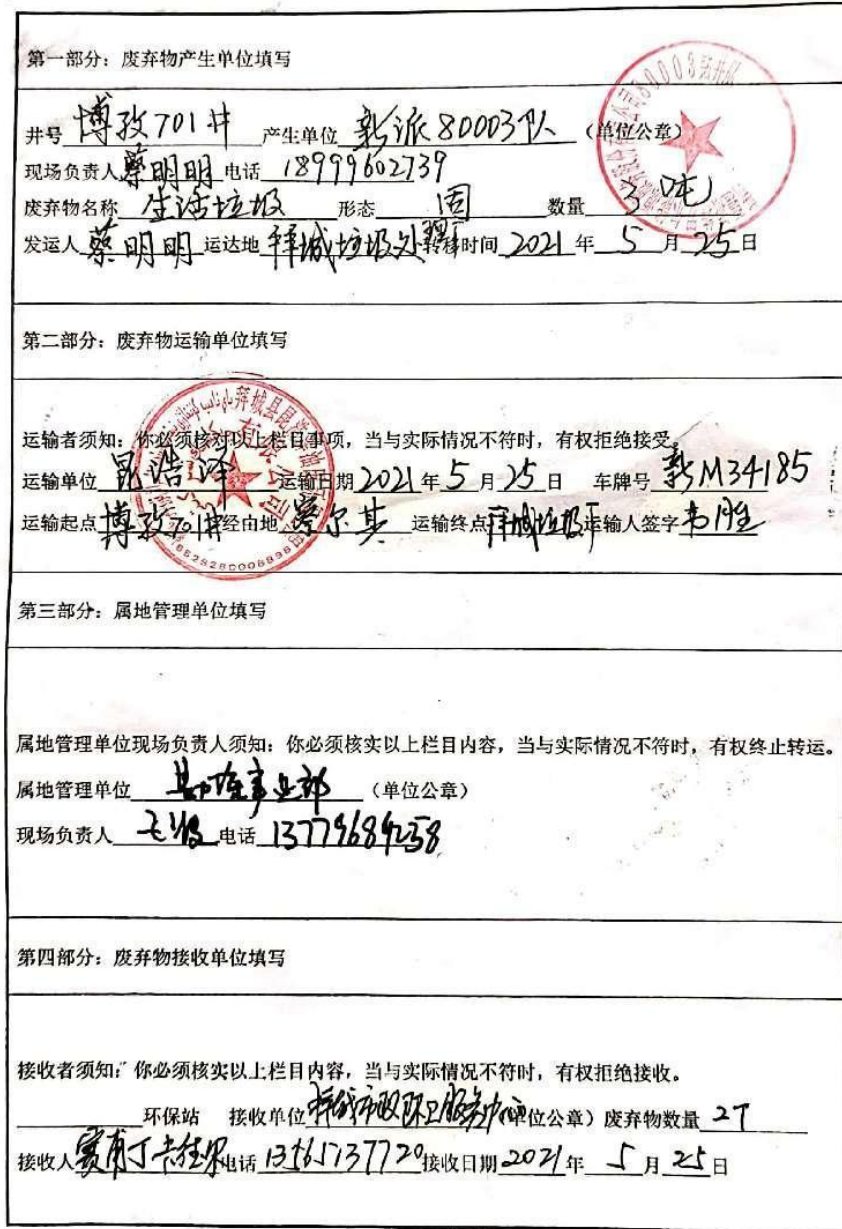 第一部分：废弃物产生单位填写
井号 博孜701井 产生单位 新派80003队 （单位公章）
现场负责人 蔡明明 电话 18999602739
废弃物名称 生活垃圾 形态 固 数量 3吨
发运人 蔡明明 运达地 拜城垃圾处理厂 转移时间 2021 年 5 月 25 日
第二部分：废弃物运输单位填写
运输者须知：你必须核对以上栏目事项，当与实际情况不符时，有权拒绝接受。
运输单位 昆浩泽 运输日期 2021 年 5 月 25 日 车牌号 新M34185
运输起点 博孜701井 经由地 察尔其 运输终点 拜城垃圾厂 运输人签字
6528280008898
第三部分：属地管理单位填写
属地管理单位现场负责人须知：你必须核实以上栏目内容，当与实际情况不符时，有权终止转运。
属地管理单位 勘探事业部 （单位公章）
现场负责人 电话 13779689258
第四部分：废弃物接收单位填写
接收者须知：你必须核实以上栏目内容，当与实际情况不符时，有权拒绝接收。
环保站 接收单位 拜城市政环卫服务中心 （单位公章）废弃物数量 2T
接收人 电话 13565137720 接收日期 2021 年 5 月 25 日